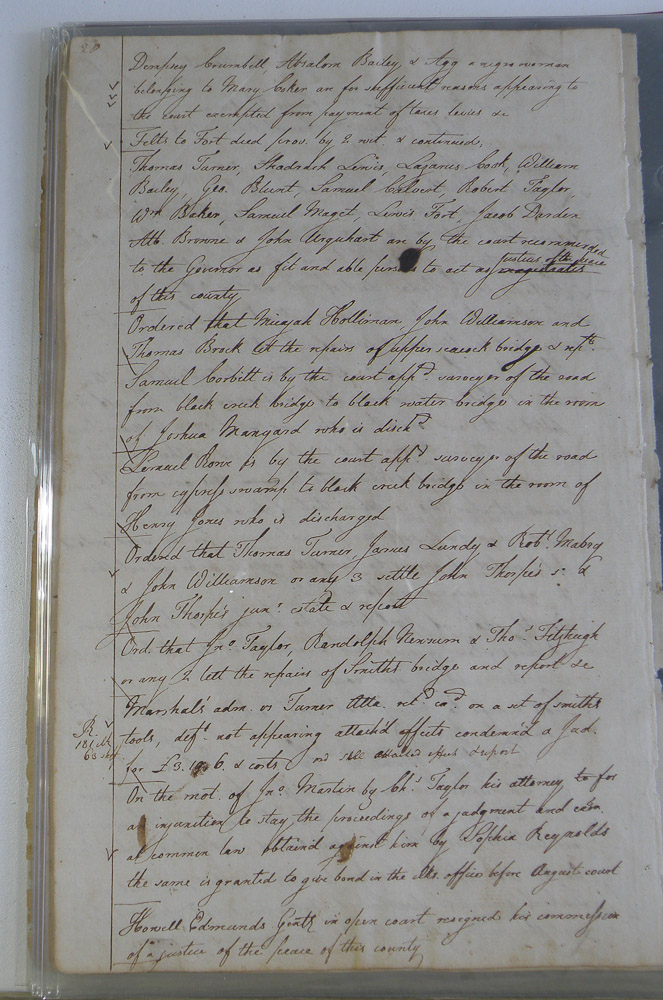 Dempsey Crumbell, Absalom Bailey, & Agg a negro woman
belonging to Mary Coker are for sufficient reasons appearing to
the court exempted from payment of taxes levies &c
Felts to Fort deed prov. by 2 wit. & continued,
Thomas Turner, Shadrach Lewis, Lazarus Cook, William
Bailey, Geo. Blunt, Samuel Calvert, Robert Taylor
Wm Baker, Samuel Maget, Lewis Fort, Jacob Darden
Alb. Browne & John Urquhart are by the court recommended
to the Governor as fit and able persons to act as justices of the peace magistrates
of this county
Ordered that Micajah Holliman, John Williamson and
Thomas Brock let the repairs of upper seacock bridge & rpt.
Samuel Corbitt is by the court appd surveyor of the road
from black creek bridge to black water bridge in the room
of Joshua Mangard who is dischd
Lemuel Rowe is by the court appd surveyor of the road
from cypress swamp to black creek bridge in the room of
Henry Jones who is discharged
Ordered that Thomas Turner, James Lundy & Robt. Mabry
& John Williamson or any 3 settle John Thorpe's sr. &
John Thorpe's junr. estate & report
Ord. that Jno. Taylor, Randolph Newsum & Thos. Fitzhugh
or any 2 lett the repairs of Smiths bridge and report &c
Marshals' adm. vs Turner Atta. retd. exd. on a set of smiths
tools, deft. not appearing attach'd effects condemn'd & Jud.
for £3. & costs ord sell attached effects & report
On the mot. of Jno. Martin by Chs. Taylor his attorney to for
an injunction to stay the proceedings of a judgment and exon.
at common law obtain'd against him by Sophia Reynolds
the same is granted to give bond in the clks. office before August court
Howell Edmunds Gent. in open court resigned his commission
of a justice of the peace of this county